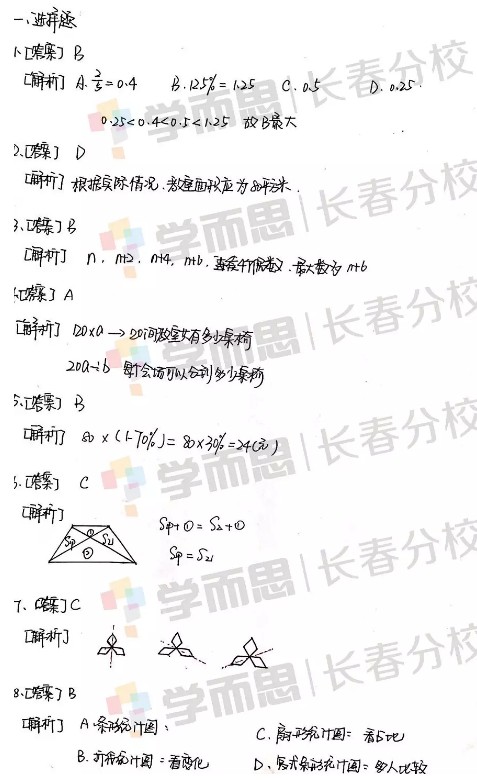 一、选择题
1.[答案] B
[解析] A. 2/5=0.4 B. 125%=1.25 C. 0.5 D. 0.25
0.25<0.4<0.5<1.25 故B最大
2.[答案] D
[解析] 根据实际情况.教室面积应为 平方米.
3.[答案] B
[解析] n, n+2, n+4, n+6. 连续4个偶数.最大数为 n+6
[答案] A
[解析] 20×a → 20间教室共有多少桌椅
20a÷b 每个会场可以分到多少桌椅
5.[答案] B
[解析] 80×(1-70%)=80×30%=24(元)
[答案] C
[解析]
S甲 ① S乙
②
S甲+①=S乙+①
S甲=S乙
7.[答案] C
[解析]
8.[答案] B
[解析] A.条形统计图: C.扇形统计图=看占比
B.折线统计图=看变化 D.复式条形统计图=多人比较
学而思 长春分校
学而思 长春分校
学而思 长春分校
学而思 长春分校
学而思 长春分校
学而思 长春分校